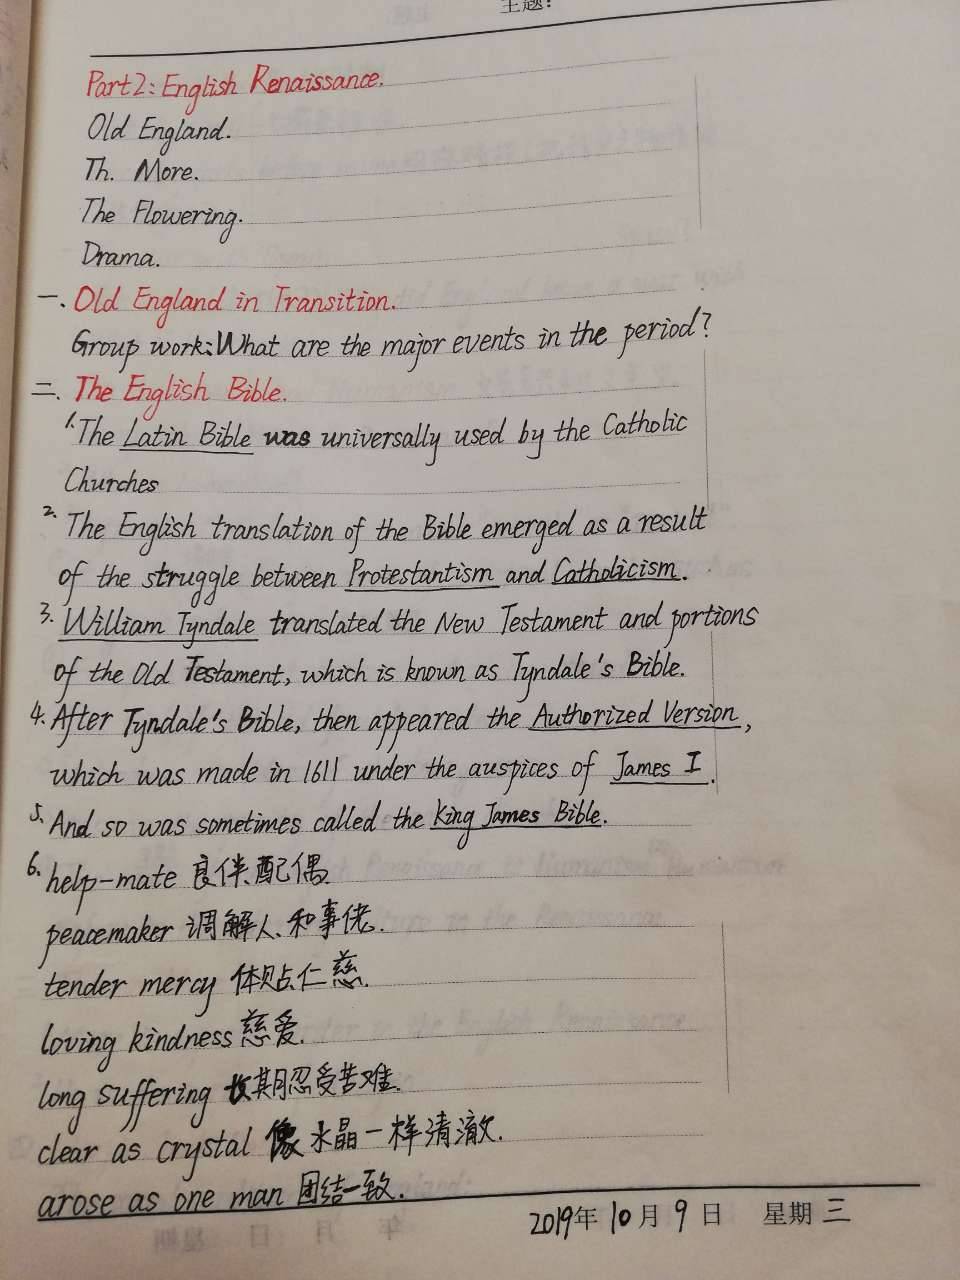 主题:
Part2: English Renaissance.
Old England.
Th. More.
The Flowering.
Drama.
一、Old England in Transition.
Group work: What are the major events in the period?
二、The English Bible.
1. The Latin Bible was universally used by the Catholic
Churches
2. The English translation of the Bible emerged as a result
of the struggle between Protestantism and Catholicism.
3. William Tyndale translated the New Testament and portions
of the Old Testament, which is known as Tyndale's Bible.
4. After Tyndale's Bible, then appeared the Authorized Version,
which was made in 1611 under the auspices of James I.
5. And so was sometimes called the King James Bible.
6. help-mate 良伴、配偶.
peacemaker 调解人、和事佬.
tender mercy 体贴仁慈.
loving kindness 慈爱.
long suffering 长期忍受苦难.
clear as crystal 像水晶一样清澈.
arose as one man 团结一致.
2019年10月9日 星期三